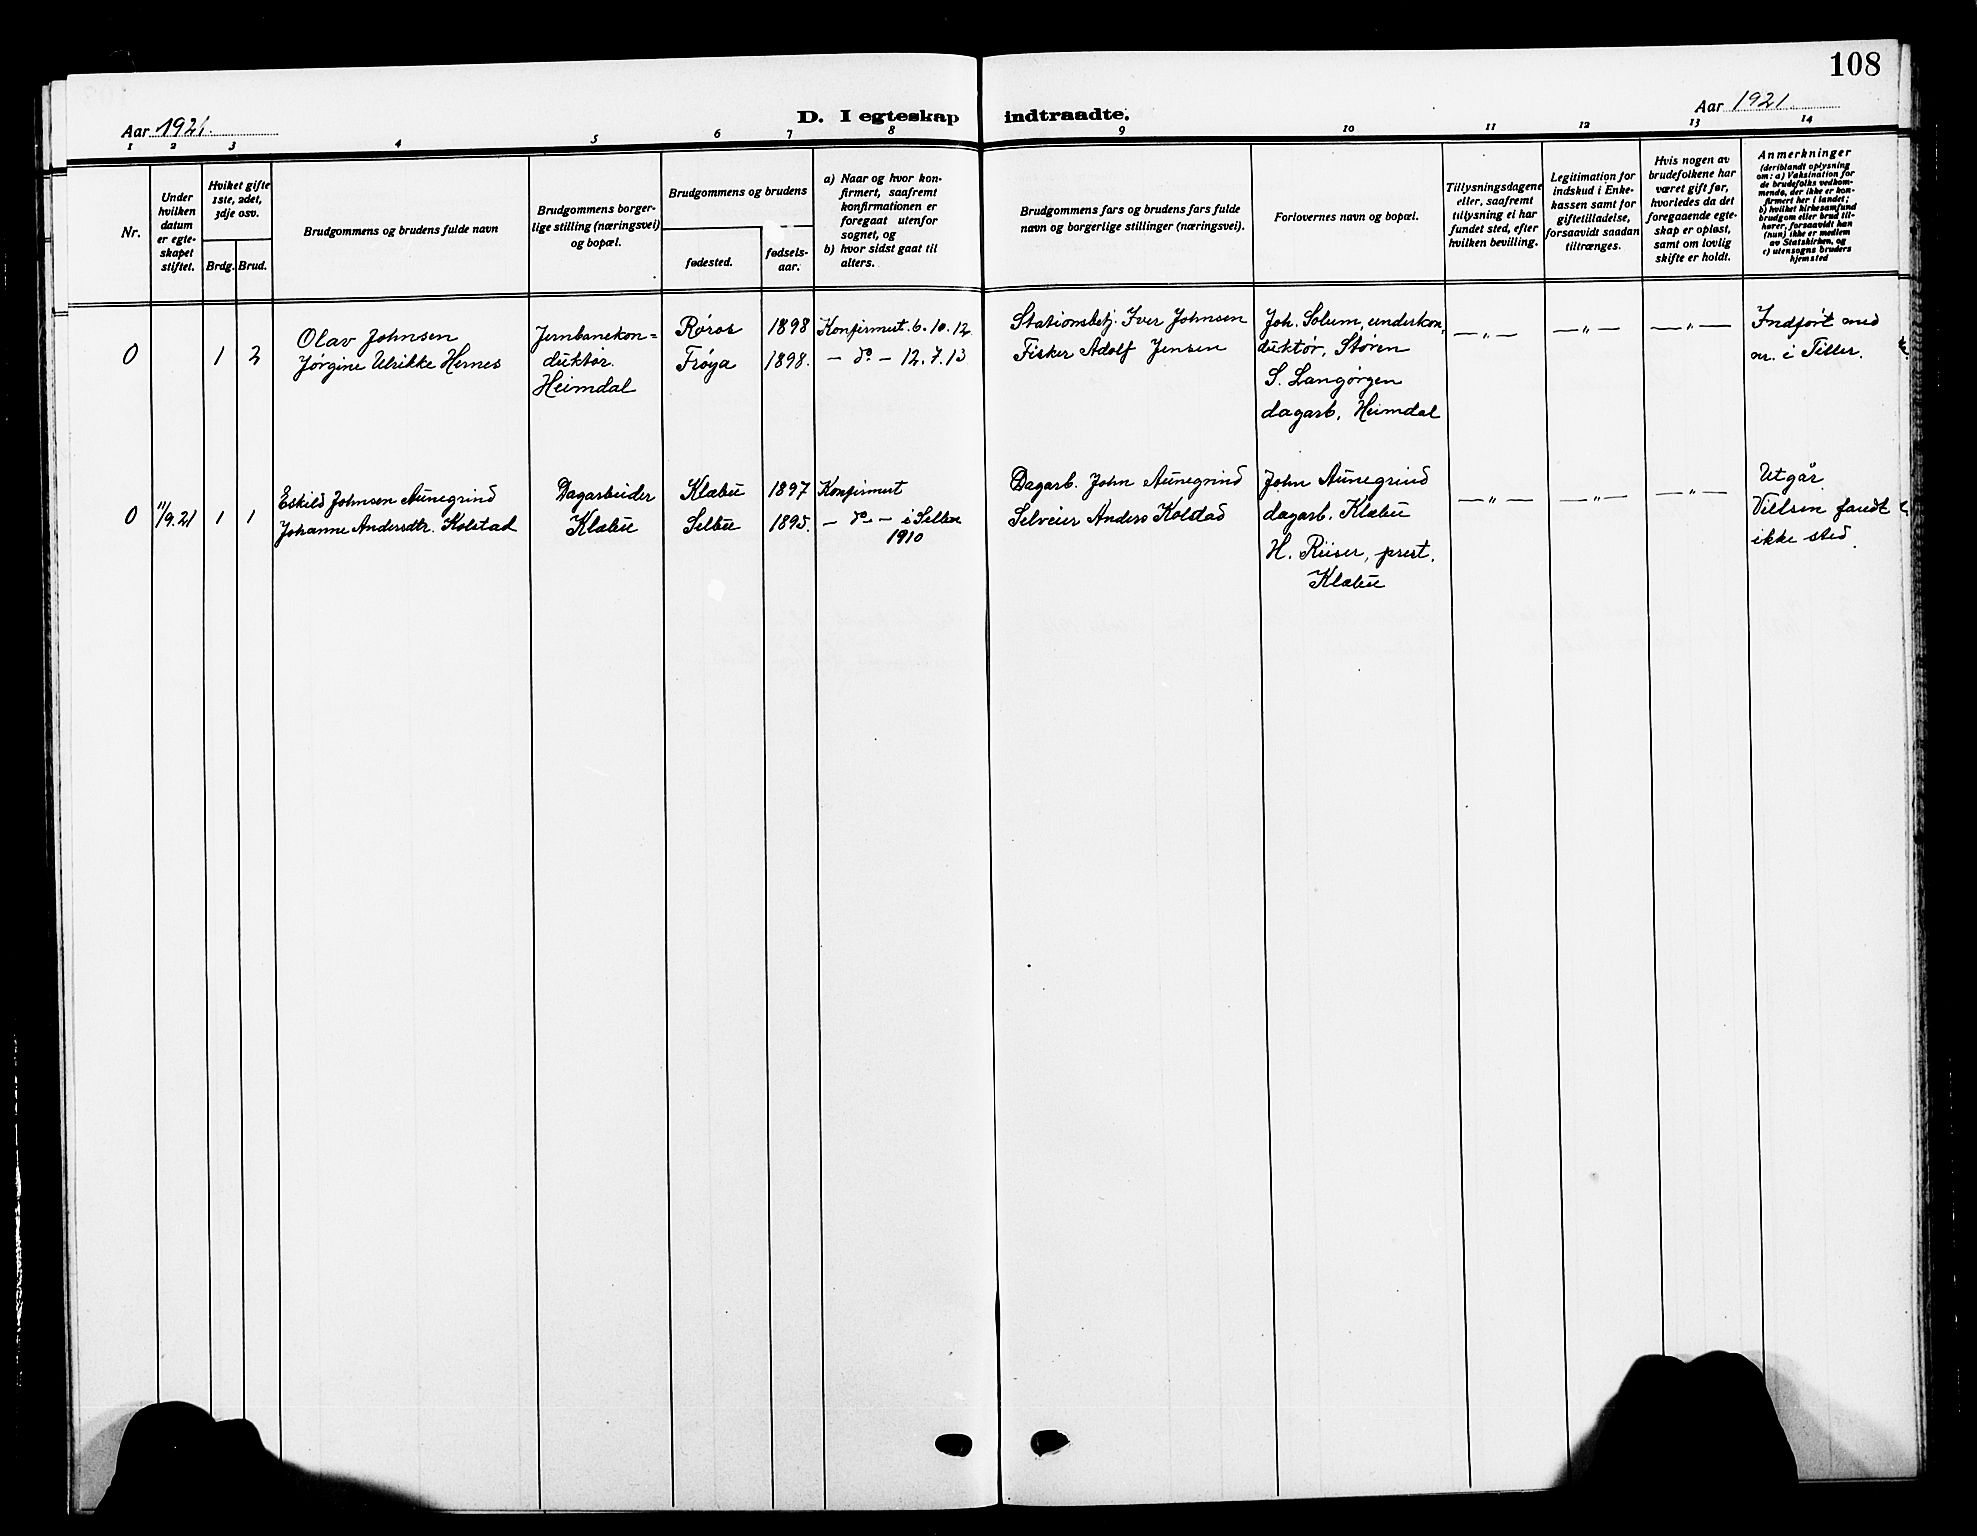 108
Aar 1921.
D. I egteskap indtraadte.
Aar 1921
1 2 3 4 5 6 7 8 9 10 11 12 13 14
Nr.
Under
hvilken
datum
er egte-
skapet
stiftet.
Hvilket gifte
1ste, 2det,
3dje osv.
Brdg. Brud.
Brudgommens og brudens fulde navn
Brudgommens borger-
lige stilling (næringsvei)
og bopæl.
Brudgommens og brudens
fødested.
fødsels-
aar.
a) Naar og hvor kon-
firmert, saafremt
konfirmationen er
foregaat utenfor
sognet, og
b) hvor sidst gaat til
alters.
Brudgommens fars og brudens fars fulde
navn og borgerlige stillinger (næringsvei).
Forlovernes navn og bopæl.
Tillysningsdagene
eller, saafremt
tillysning ei har
fundet sted, efter
hvilken bevilling.
Legitimation for
indskud i Enke-
kassen samt for
giftetilladelse,
forsaavidt saadan
tiltrænges.
Hvis nogen av
brudefolkene har
været gift før,
hvorledes da det
foregaaende egte-
skap er opløst,
samt om lovlig
skifte er holdt.
Anmerkninger
(deriblandt oplysning
om: a) Vaksination for
de brudefolks vedkom-
mende, der ikke er kon-
firmert her i landet;
b) hvilket kirkesamfund
brudgom eller brud til-
hører, forsaavidt han
(hun) ikke er medlem
av Statskirken, og
c) utensogns bruders
hjemsted
0
1 2
Olav Johnsen
Jørgine Ulrikke Hernes
Jernbanekon=
duktør.
Heimdal
Røros
Frøya
1898
1898.
Konfirmert. 6.10.12
— do — 12.7.13
Stationsbetj. Iver Johnsen
Fisker Adolf Jensen
Joh. Solum, underkon,
duktør, Støren
S. Langørgen
dagarb, Heimdal
— „ —
— „ —
— „ —
Indført med
nr. i Tiller.
0
11/9.21
1 1
Eskild Johnsen Aunegrind
Johanne Andersdtr. Kolstad
Dagarbeider
Klæbu
Klæbu
Selbu
1897
1895.
Konfirmert
— do — i Selbu
1910
Dagarb. John Aunegrind
Selveier Anders Kolstad
John Aunegrind
dagarb. Klæbu
H. Riiser, prest.
Klæbu
— „ —
— „ —
— „ —
Utgår
Vielsen fandt
ikke sted.